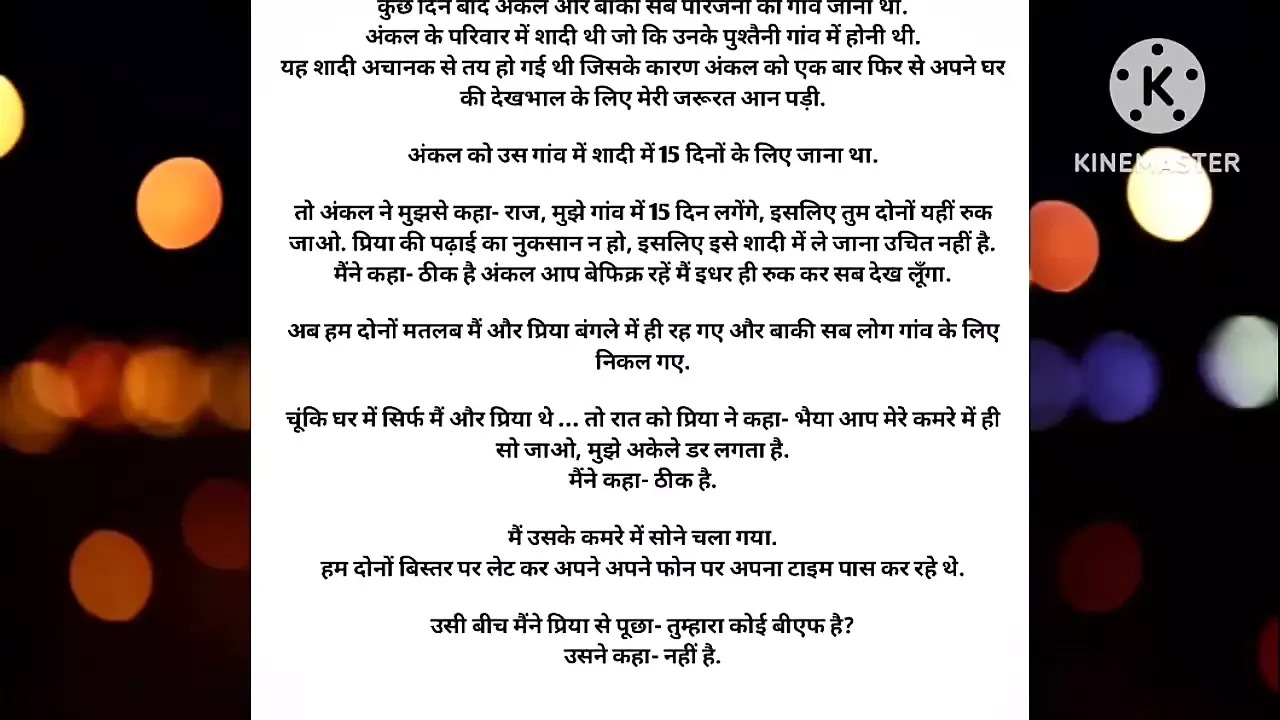 कुछ दिन बाद अंकल और बाकी सब परिजनों को गांव जाना था.
अंकल के परिवार में शादी थी जो कि उनके पुश्तैनी गांव में होनी थी.
यह शादी अचानक से तय हो गई थी जिसके कारण अंकल को एक बार फिर से अपने घर
की देखभाल के लिए मेरी जरूरत आन पड़ी.
अंकल को उस गांव में शादी में 15 दिनों के लिए जाना था.
तो अंकल ने मुझसे कहा- राज, मुझे गांव में 15 दिन लगेंगे, इसलिए तुम दोनों यहीं रुक
जाओ. प्रिया की पढ़ाई का नुकसान न हो, इसलिए इसे शादी में ले जाना उचित नहीं है.
मैंने कहा- ठीक है अंकल आप बेफिक्र रहें मैं इधर ही रुक कर सब देख लूँगा.
अब हम दोनों मतलब मैं और प्रिया बंगले में ही रह गए और बाकी सब लोग गांव के लिए
निकल गए.
चूंकि घर में सिर्फ मैं और प्रिया थे … तो रात को प्रिया ने कहा- भैया आप मेरे कमरे में ही
सो जाओ, मुझे अकेले डर लगता है.
मैंने कहा- ठीक है.
मैं उसके कमरे में सोने चला गया.
हम दोनों बिस्तर पर लेट कर अपने अपने फोन पर अपना टाइम पास कर रहे थे.
उसी बीच मैंने प्रिया से पूछा- तुम्हारा कोई बीएफ है?
उसने कहा- नहीं है.
K
KINEMASTER